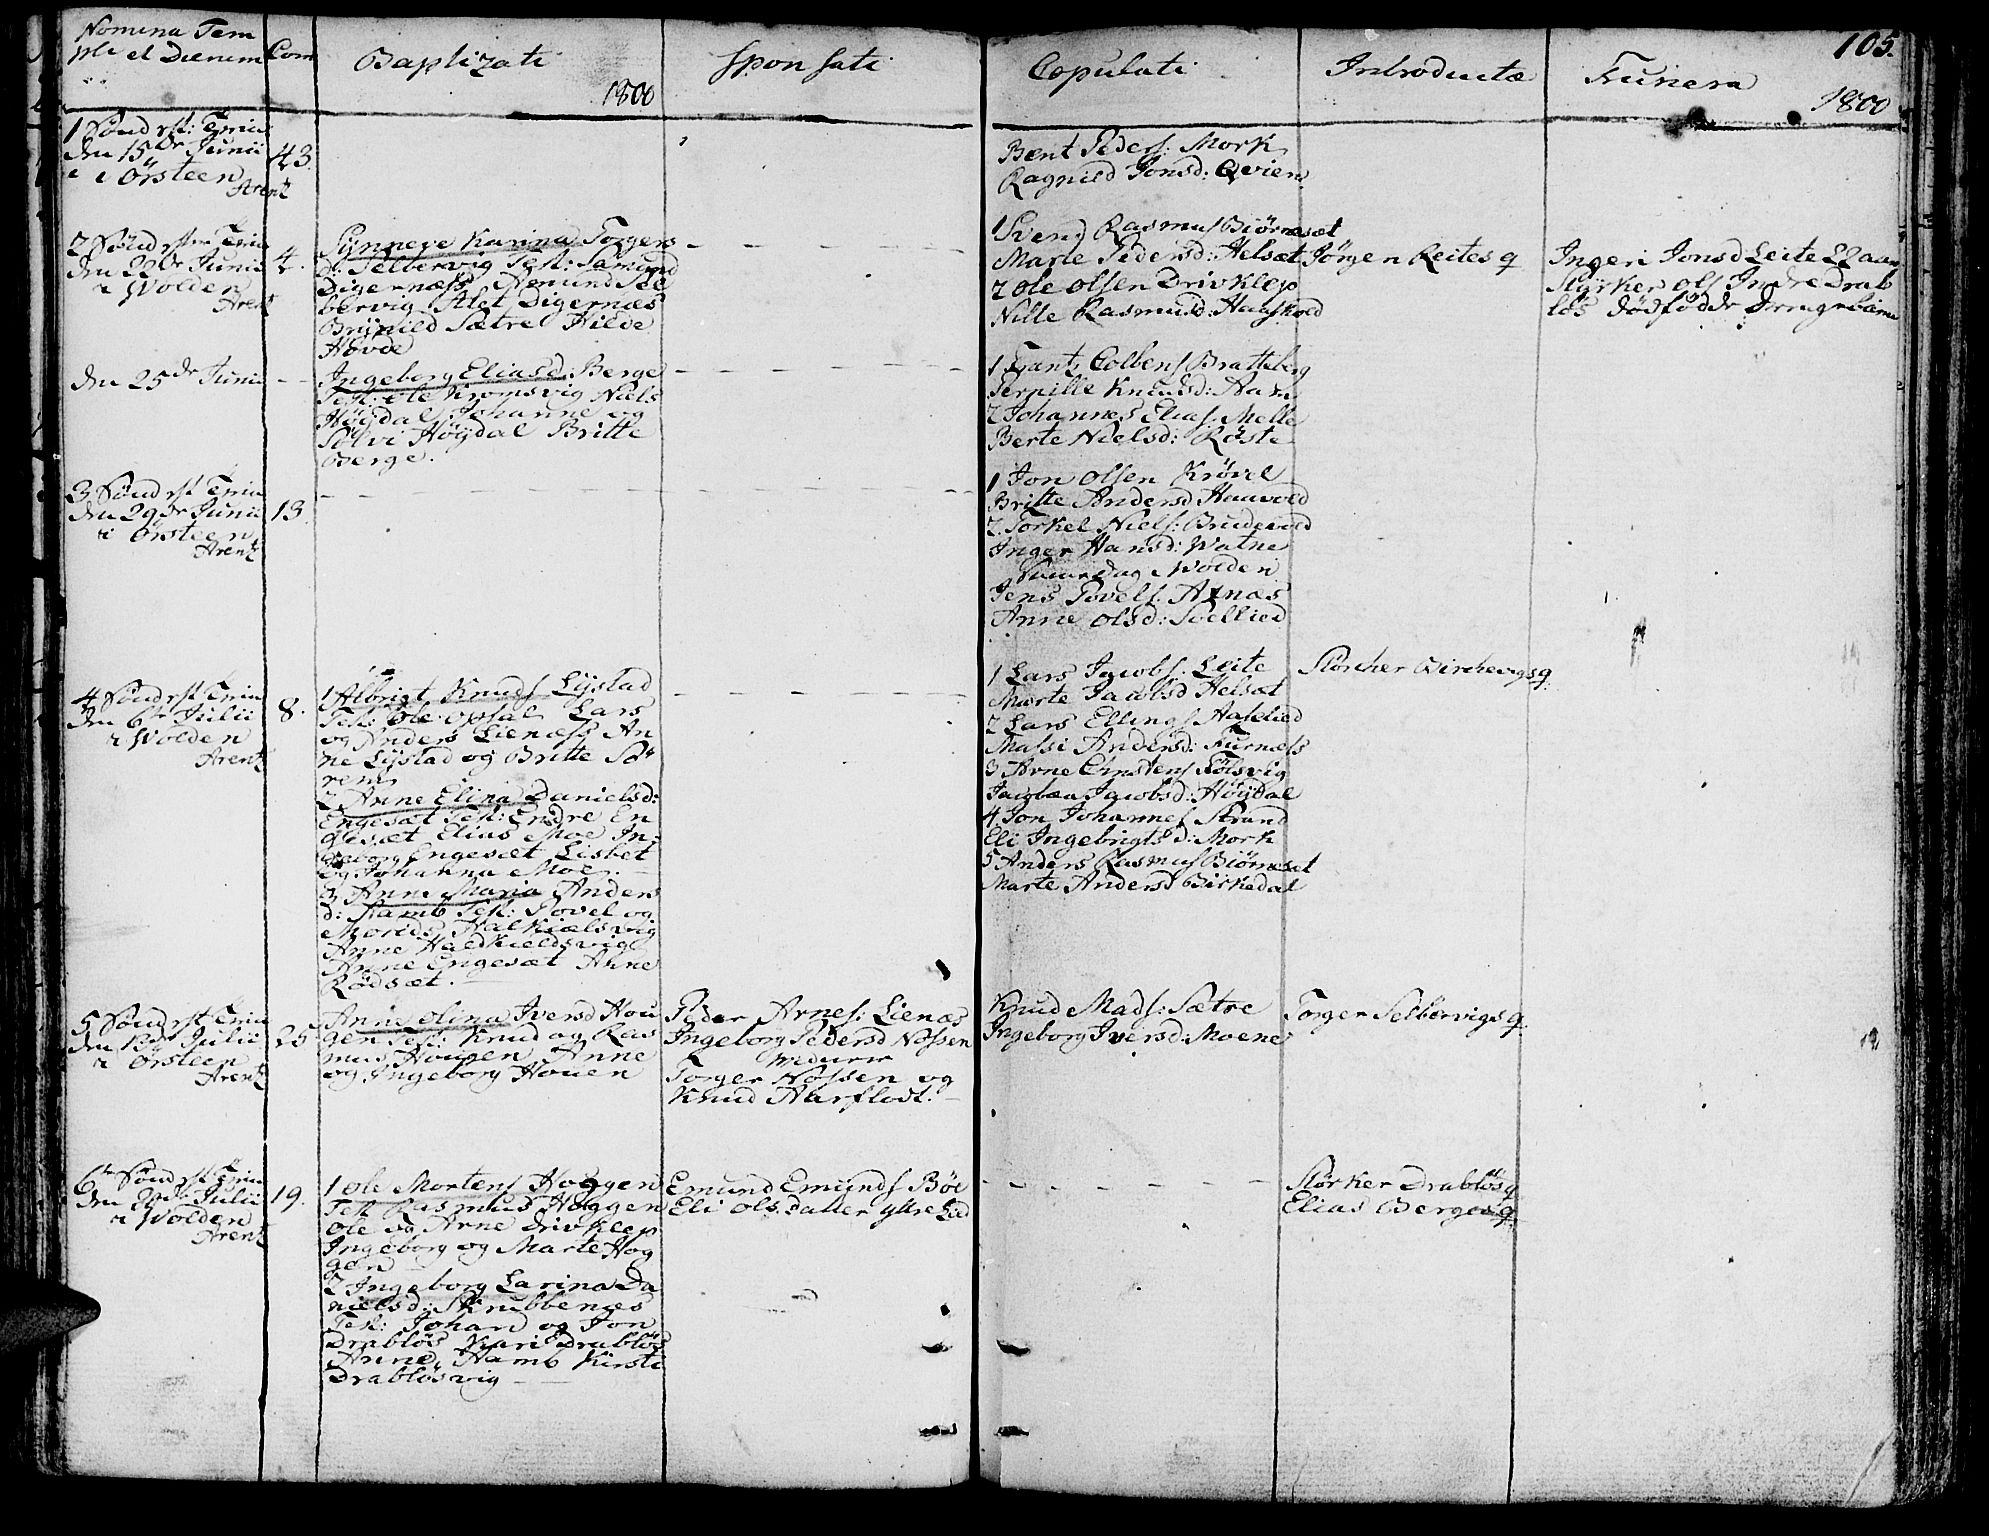 Nomina Tem
pli et Dierum
Com
Baptizati
1800
Sponsati
Copulati
Introductæ
Funera
105.
1800
1 Sönd
den 15de Junii
i Örsteen
Arentz
43.
Bent Peders: Mork
Ragnild Jonsd: Qvien
2 Sönd
den 22de Junii
i Wolden
Arentz
4.
Synneve Karina Torgers
d: Selbervig Test:
Digernæss Amund Sel
bervig Alet Digernæs
Brynild Sætre Hilde
Hovde
1 Svend Rasmus Biörnesæt
Marte Pedersd: Helsæt
2 Ole Olsen Drivklep
Nille Rasmusd:
Jörgen Leites q
Ingeri Jonsd Leite
Styrker Ols Indre Drab
lös dödfödde
den 25de Junii
Ingeborg Eliasd: Berge
Test: Ole Kromsvig Niels
Höydal Johanne og
Sölvi Höydal Britte
Berge.
1 Colbens Bratteberg
Pernille Knudsd: Aam
2 Johannes Elias: Melle
Berte Nielsd: Röste
3 Sönd
den 29de Junii
i Örsteen
Arentz
13
1 Jon Olsen Krövel
Britte Andersd
2 Torkel Niels: Brudevold
Inger Hansd: Watne
dag i Wolden
Jens Povels: Aznæs
Anne Olsd:
4 Sönd
den 6te Julii
i Wolden
Arentz
8.
1 Albrigt Knuds Lystad
Test: Ole Opsal Lars
og Anders Lienæss An
ne Lystad og Britte Sö
rem
2 Anne Elina Danielsd:
Engesæt Test: Endre En
gesæt Elias Moe In
geborg Engesæt Lisbet
og Johanna Moe.
3 Anne Maria Anders
d: Hamb Test: Povel og
Morids Halkiælsvig
Anne Haldkieldsvig
Anne Engesæt Anne
Rödsæt.
1 Lars Jacobs. Leite
Marte Jacobsd Helsæt
2 Lars Ellings Aaslied
Massi Andersd: Furnæss
3 Arne Christens Fölsvig
Jacobæa Jacobsd: Höydal
4 Jon Johannes Strand
Eli Ingebrigtsd: Mork
5 Anders Rasmus Biörnesæt
Marte Andersd Birkedal
Störcher Birchevigs q
5 Sönd
den 13de Julii
i Örsteen
Arentz
25
Anne Olina Iversd Hou
gen Test: Knud og Ras
mus Hougen Anne
og Ingeborg Houen
Peder Arnes: Lienæs
Ingeborg Pedersd Nossen
Torger Nossen og
Knud Aarflodt.
Knud Mads: Sætre
Ingeborg Iversd: Moene
Torger Selbervigs q
6te Sönd
den 20de Julii
i Wolden
Arentz
19.
1 Ole Mortens Hoggen
Test Rasmus Hoggen
Ole og Arne Drivklep
Ingeborg og Marte Hog
gen
2 Ingeborg Larina Da
nielsd: Skrubbenæs
Test: Johan og Jon
Drablös Kari Drablös
Anne Hamb Kirsti
Drablösvig
Emund Emunds Böe
Eli Ols datter Ytre Lied
Störker Drablös q
Elias Berges q